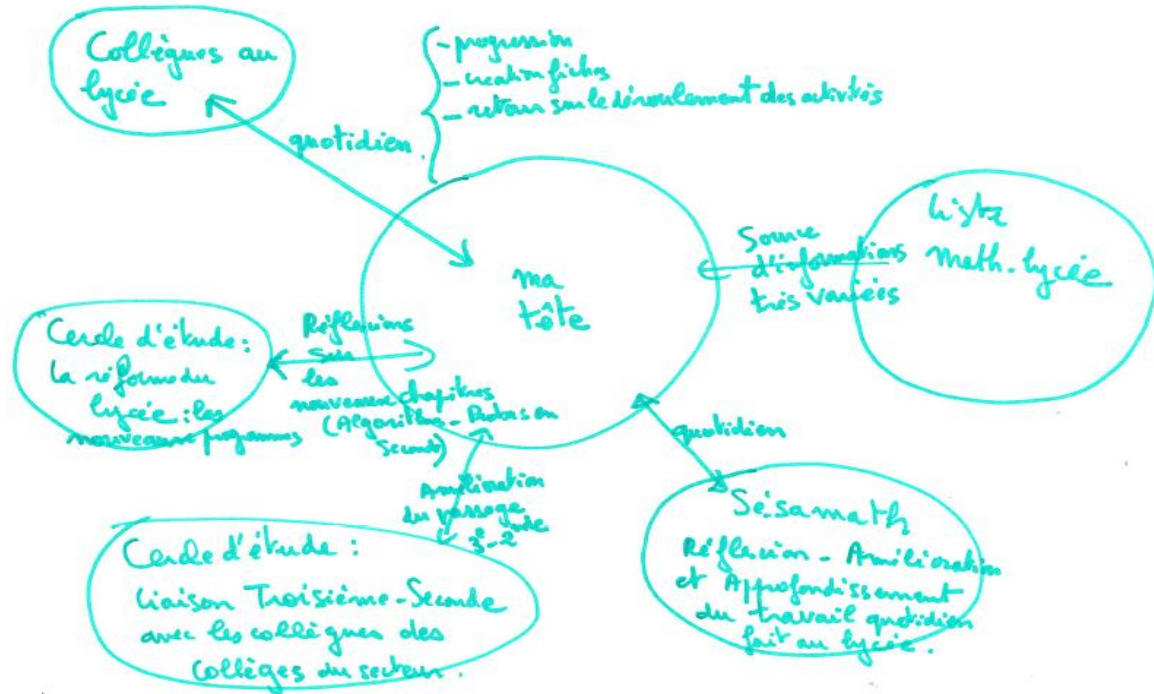 Collègues au
lycée
- progression
- création fiches
- retour sur le déroulement des activités
quotidien
ma
tête
Source
d'informations
très variées
Liste
Math-lycée
Cercle d'étude :
la réforme du
lycée : les
nouveaux programmes
Réflexions
sur
les
nouveaux chapitres
(Algorithme - Probas en
Seconde)
quotidien
Amélioration
du passage
3e - 2nde
Cercle d'étude :
Liaison Troisième-Seconde
avec les collègues des
collèges du secteur.
Sésamath
Réflexion - Amélioration
et Approfondissement
du travail quotidien
fait au lycée.